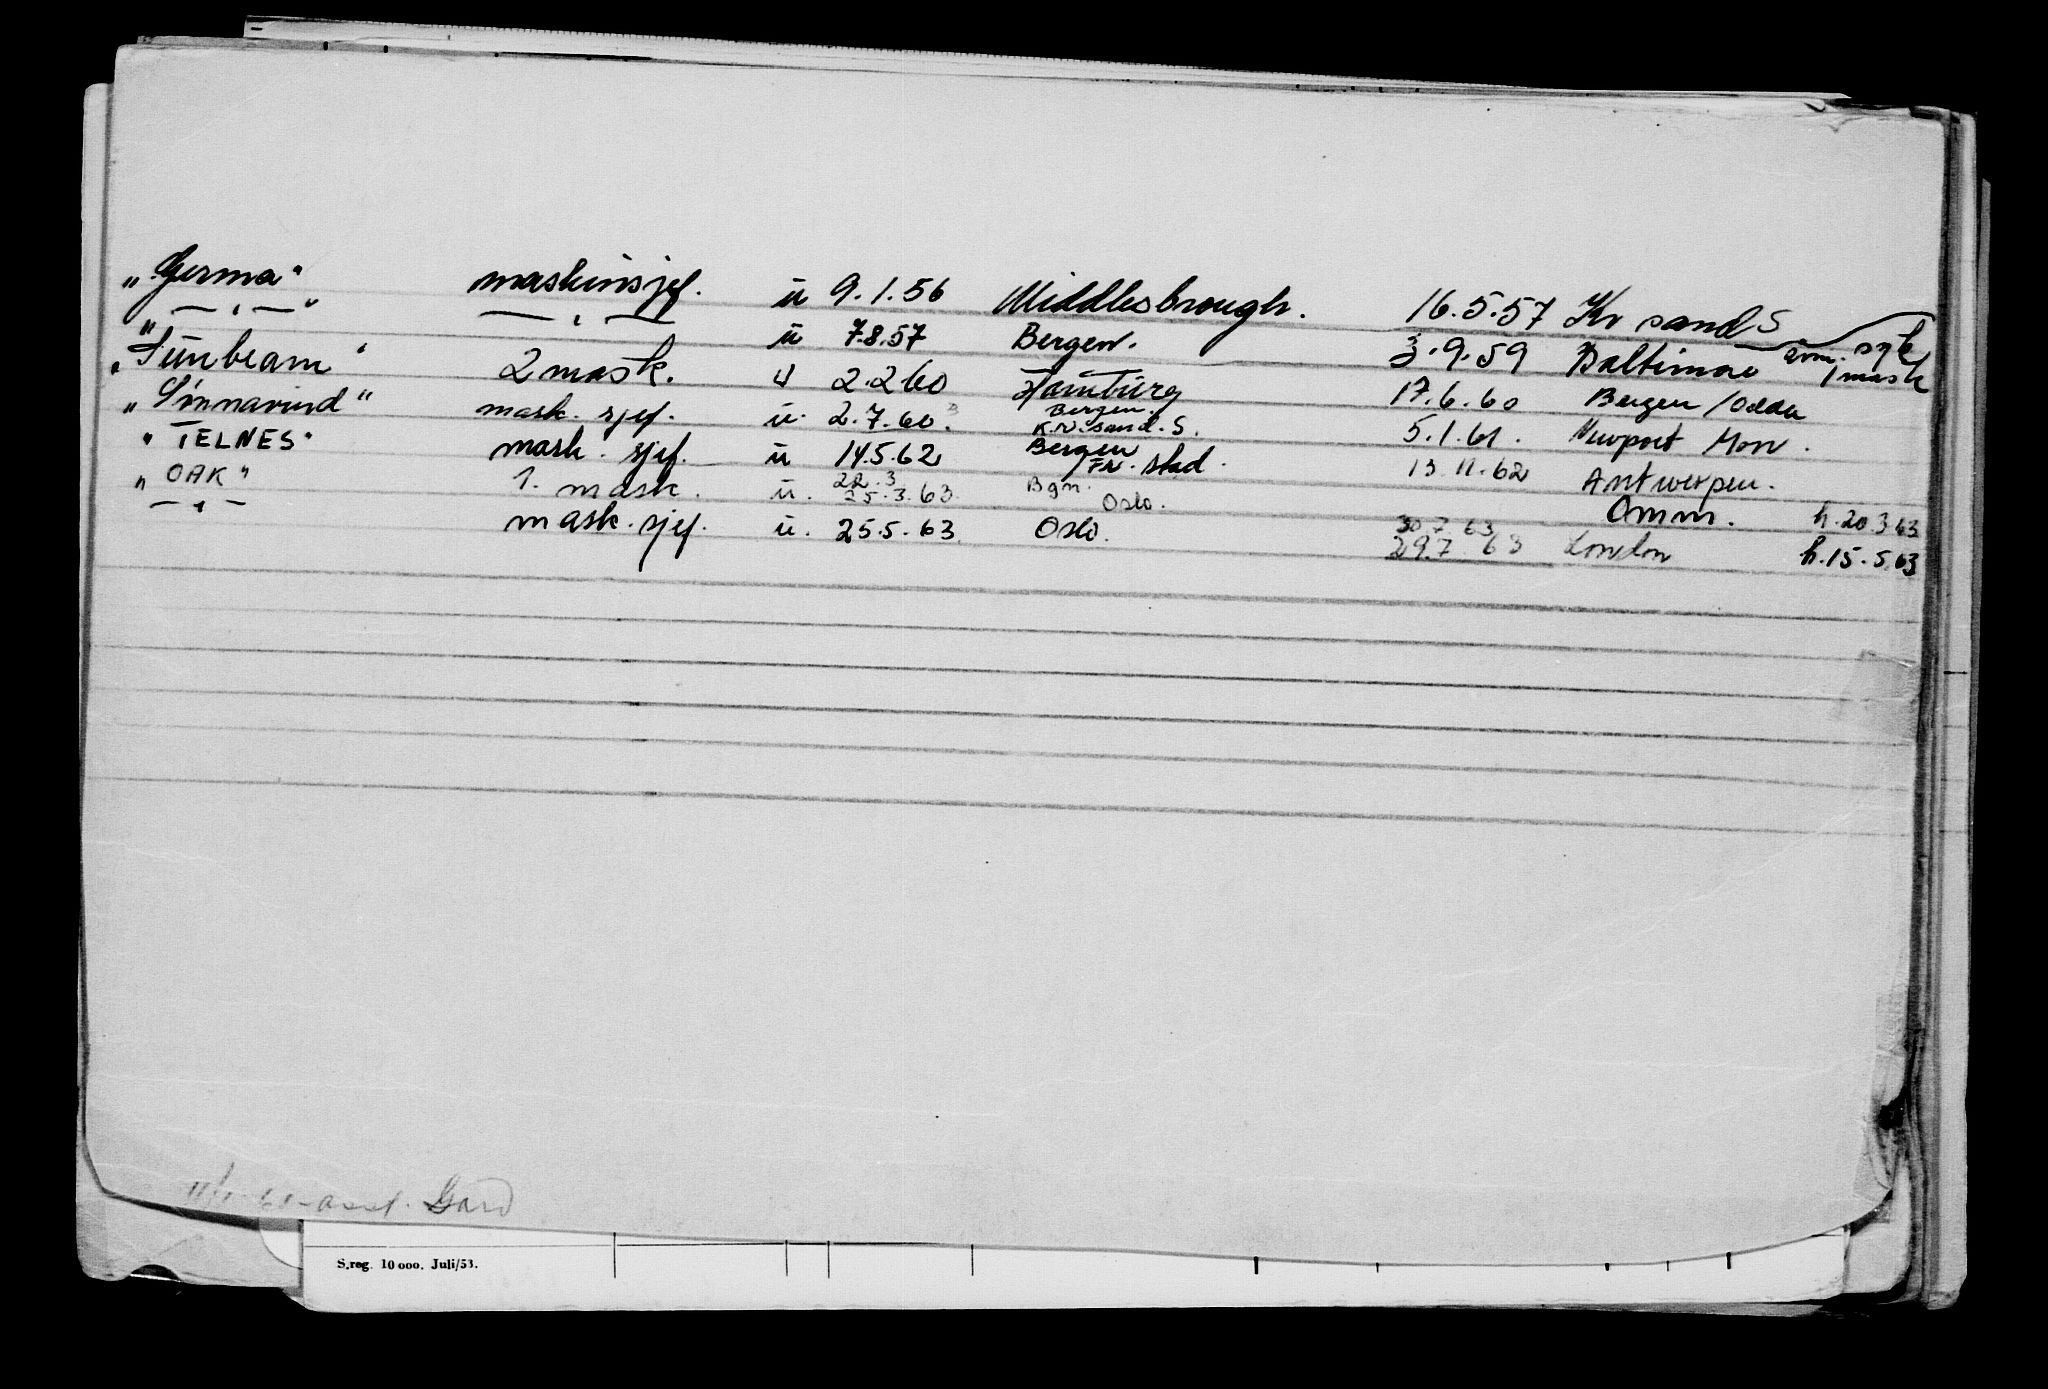 „Germa" maskinsjef. ü 9.1.56 Middlesbrough. 16.5.57 Kr sand S
— „ — " — „ — ü 7.8.57 Bergen. 3.9.59 Baltimore syk
„Sunbeam" 2 mask. ü 2.2 60 Hamburg 17.6.60 Bergen / Odda 1 mask
„Sunnavind" mask. sjef. ü. 2.7.60. Bergen. K.R.sand.S. 5.1.61. Newport Mon.
„TELNES" mask. sjef. ü 14.5.62 Bergen / FR. stad. 13.11.62 Antwerpen.
„OAK" 1. mask. ü. 22.3 25.3.63. Bgn. Oslo. Omm. h.20.3.63
— „ — mask.sjef. ü. 25.5.63. Oslo. 30.7 63 29.7.63 London h.15.5.63
Gard
S.reg. 10 000. Juli/53.